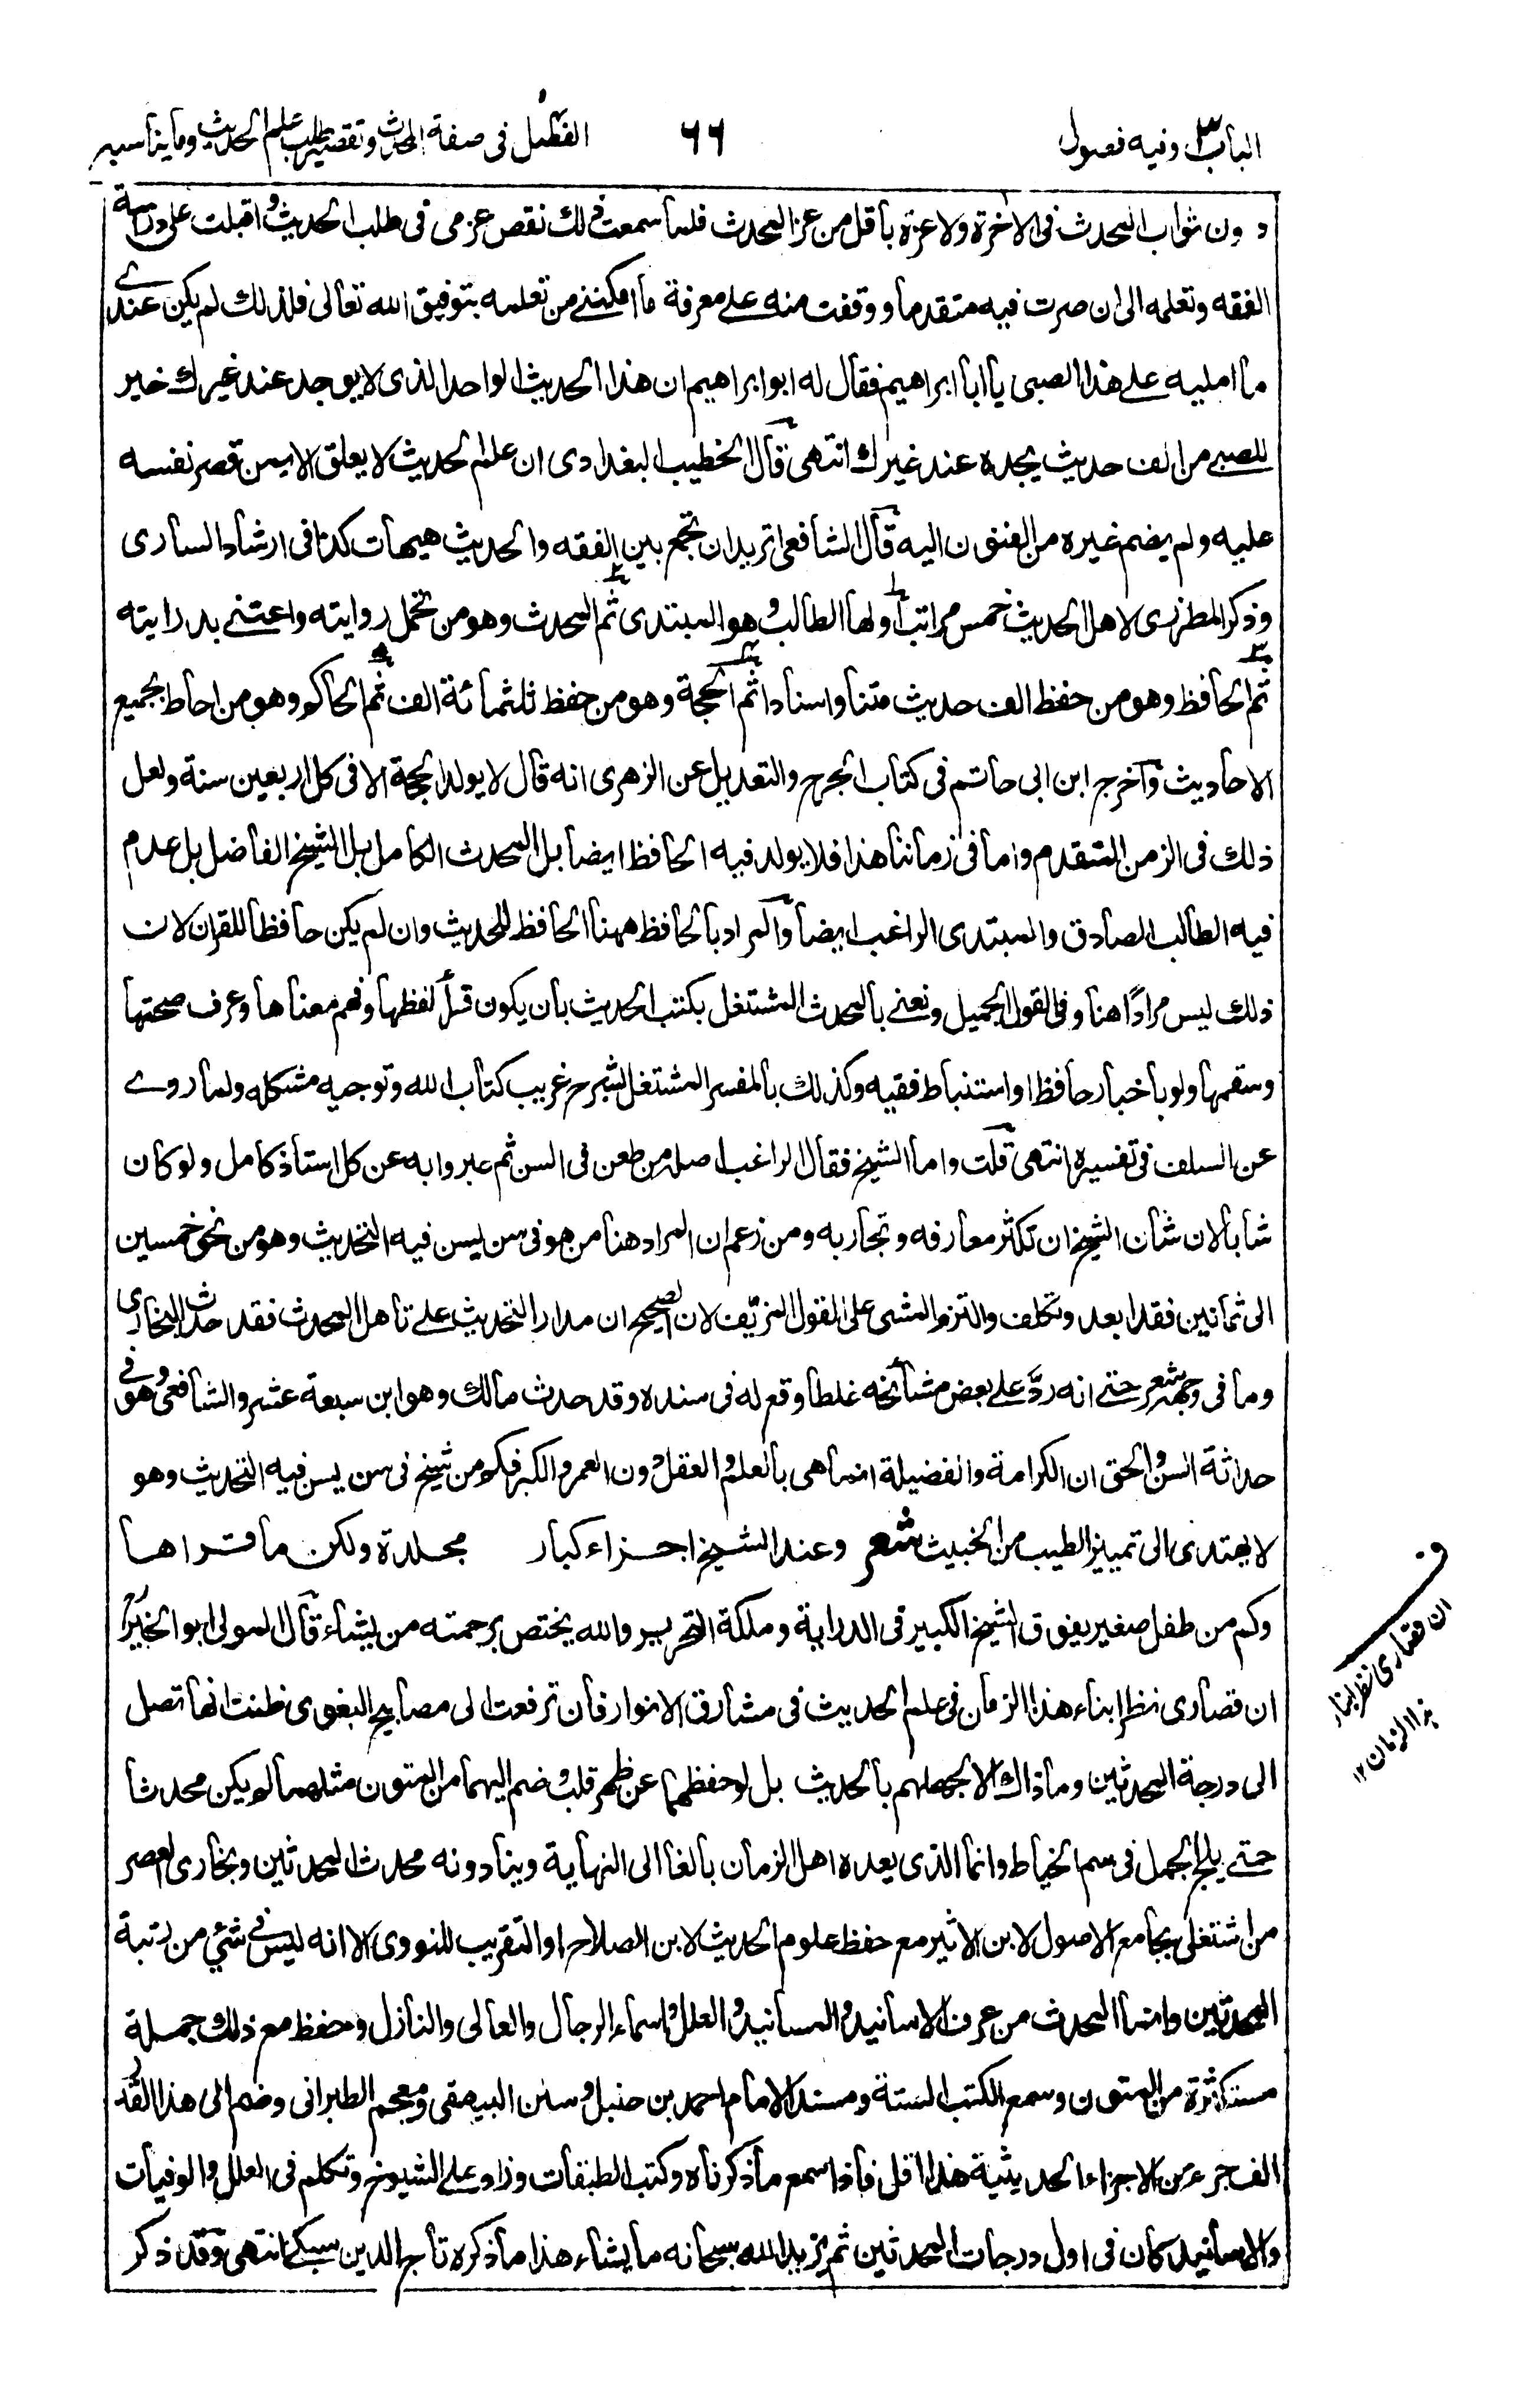 الباب ٣ وفيه فصول
٦٦
الفصل في صفة المحدث وتقصير طلب علم الحديث وما يناسبه
دون ثواب المحدث فى الاخرة ولا عزه باقل من عز المحدث فلما سمعت ذلك نقص عزمى فى طلب الحديث واقبلت على دراسة
الفقه وتعلمه الى ان صرت فيه متقدما ووقفت منه على معرفة ما امكننى من تعلمه بتوفيق الله تعالى فلذلك لم يكن عندى
ما امليه على هذا الصبى يا ابا ابراهيم فقال له ابو ابراهيم ان هذا الحديث الواحد الذى لا يوجد عند غيرك خير
للصبى من الف حديث يجده عند غيرك انتهى قال الخطيب البغدادى ان علم الحديث لا يعلق الا بمن قصر نفسه
عليه ولم يضم غيره من الفنون اليه قال الشافعى اتريد ان تجمع بين الفقه والحديث هيهات كذا فى ارشاد السارى
وذكر المطرزى لاهل الحديث خمس مراتب اولها الطالب وهو المبتدى ثم المحدث وهو من تحمل روايته واعتنى بدرايته
ثم الحافظ وهو من حفظ الف حديث متنا واسنادا ثم الحجة وهو من حفظ ثلثمائة الف ثم الحاكم وهو من احاط بجميع
الاحاديث واخرج ابن ابى حاتم فى كتاب الجرح والتعديل عن الزهرى انه قال لا يولد الحجة الا فى كل اربعين سنة ولعل
ذلك فى الزمن المتقدم واما فى زماننا هذا فلا يولد فيه الحافظ ايضا بل المحدث الكامل بل الشيخ الفاضل بل عدم
فيه الطالب الصادق والمبتدى الراغب ايضا والمراد بالحافظ ههنا الحافظ للحديث وان لم يكن حافظا للقران لان
ذلك ليس مرادًا هنا وفى القول الجميل ونعنى بالمحدث المشتغل بكتب الحديث بان يكون قرأ لفظها وفهم معناها وعرف صحتها
وسقمها ولو باخبار حافظ او استنباط فقيه وكذلك بالمفسر المشتغل بشرح غريب كتاب الله وتوجيه مشكله ولما روى
عن السلف فى تفسيره انتهى قلت واما الشيخ فقال الراغب اصله من طعن فى السن ثم عبروا به عن كل استاذ كامل ولو كان
شابا لان شان الشيخ ان تكثر معارفه وتجاربه ومن زعم ان المراد هنا من هو فى سن يسن فيه التحديث وهو من نحو خمسين
الى ثمانين فقد ابعد وتكلف والتزم المشى على القول المزيّف لان الصحيح ان مدار التحديث على تاهل المحدث فقد حدث البخارى
وما فى وجهه شعر حتى انه ردَّ على بعض مشائخه غلطا وقع له فى سنده وقد حدث مالك وهو ابن سبعة عشر والشافعى وهو فى
حداثة السن والحق ان الكرامة والفضيلة انما هى بالعلم والعقل دون العمر والكبر فكم من شيخ فى سن يسن فيه التحديث وهو
لا يهتدى الى تمييز الطيب من الخبيث شعر وعند الشيخ اجزاء كبار مجلدة ولكن ما قراها
وكم من طفل صغير يفوق الشيخ الكبير فى الدراية وملكة التحرير والله يختص برحمته من يشاء قال المولى ابو الخير
ان قصارى نظر ابناء هذا الزمان فى علم الحديث فى مشارق الانوار فان ترفعت الى مصابيح البغوى ظنت انها تصل
الى درجة المحدثين وما ذاك الا لجهلهم بالحديث بل لو حفظهما عن ظهر قلب وضم اليهما من المتون مثلهما لم يكن محدثا
حتى يلج الجمل فى سم الخياط وانما الذى يعده اهل الزمان بالغا الى النهاية وينادونه محدث المحدثين وبخارى العصر
من اشتغل بجامع الاصول لابن الاثير مع حفظ علوم الحديث لابن الصلاح او التقريب للنووى الا انه ليس فى شئ من رتبة
المحدثين وانما المحدث من عرف الاسانيد والمسانيد والعلل واسماء الرجال والعالى والنازل وحفظ مع ذلك جملة
مستكثرة من المتون وسمع الكتب الستة ومسند الامام احمد بن حنبل وسنن البيهقى ومعجم الطبرانى وضم الى هذا القدر
الف جزء من الاجزاء الحديثية هذا اقل فاذا سمع ما ذكرناه وكتب الطبقات وزاد على الشيوخ وتكلم فى العلل والوفيات
والاسانيد كان فى اول درجات المحدثين ثم يزيد الله سبحانه ما يشاء هذا ما ذكره تاج الدين سبكى انتهى وقد ذكر
ف
ان قصارى نظر ابناء
هذا الزمان ١٢